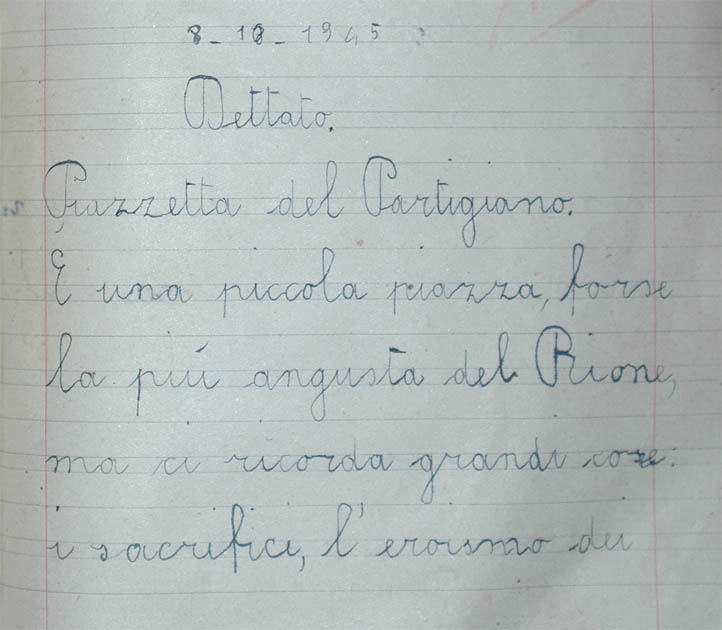 8-10-1945
Dettato.
Piazzetta del Partigiano.
È una piccola piazza, forse
la piú angusta del Rione,
ma ci ricorda grandi cose:
i sacrifici, l'eroismo dei